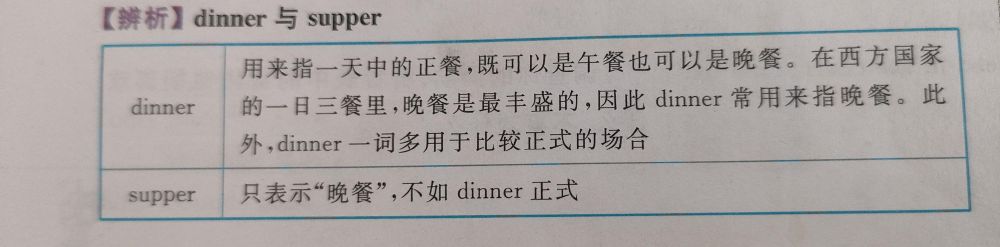 【辨析】dinner 与 supper
用来指一天中的正餐,既可以是午餐也可以是晚餐。在西方国家
dinner
的一日三餐里,晚餐是最丰盛的,因此 dinner 常用来指晚餐。此
外,dinner 一词多用于比较正式的场合
supper
只表示“晚餐”,不如 dinner 正式